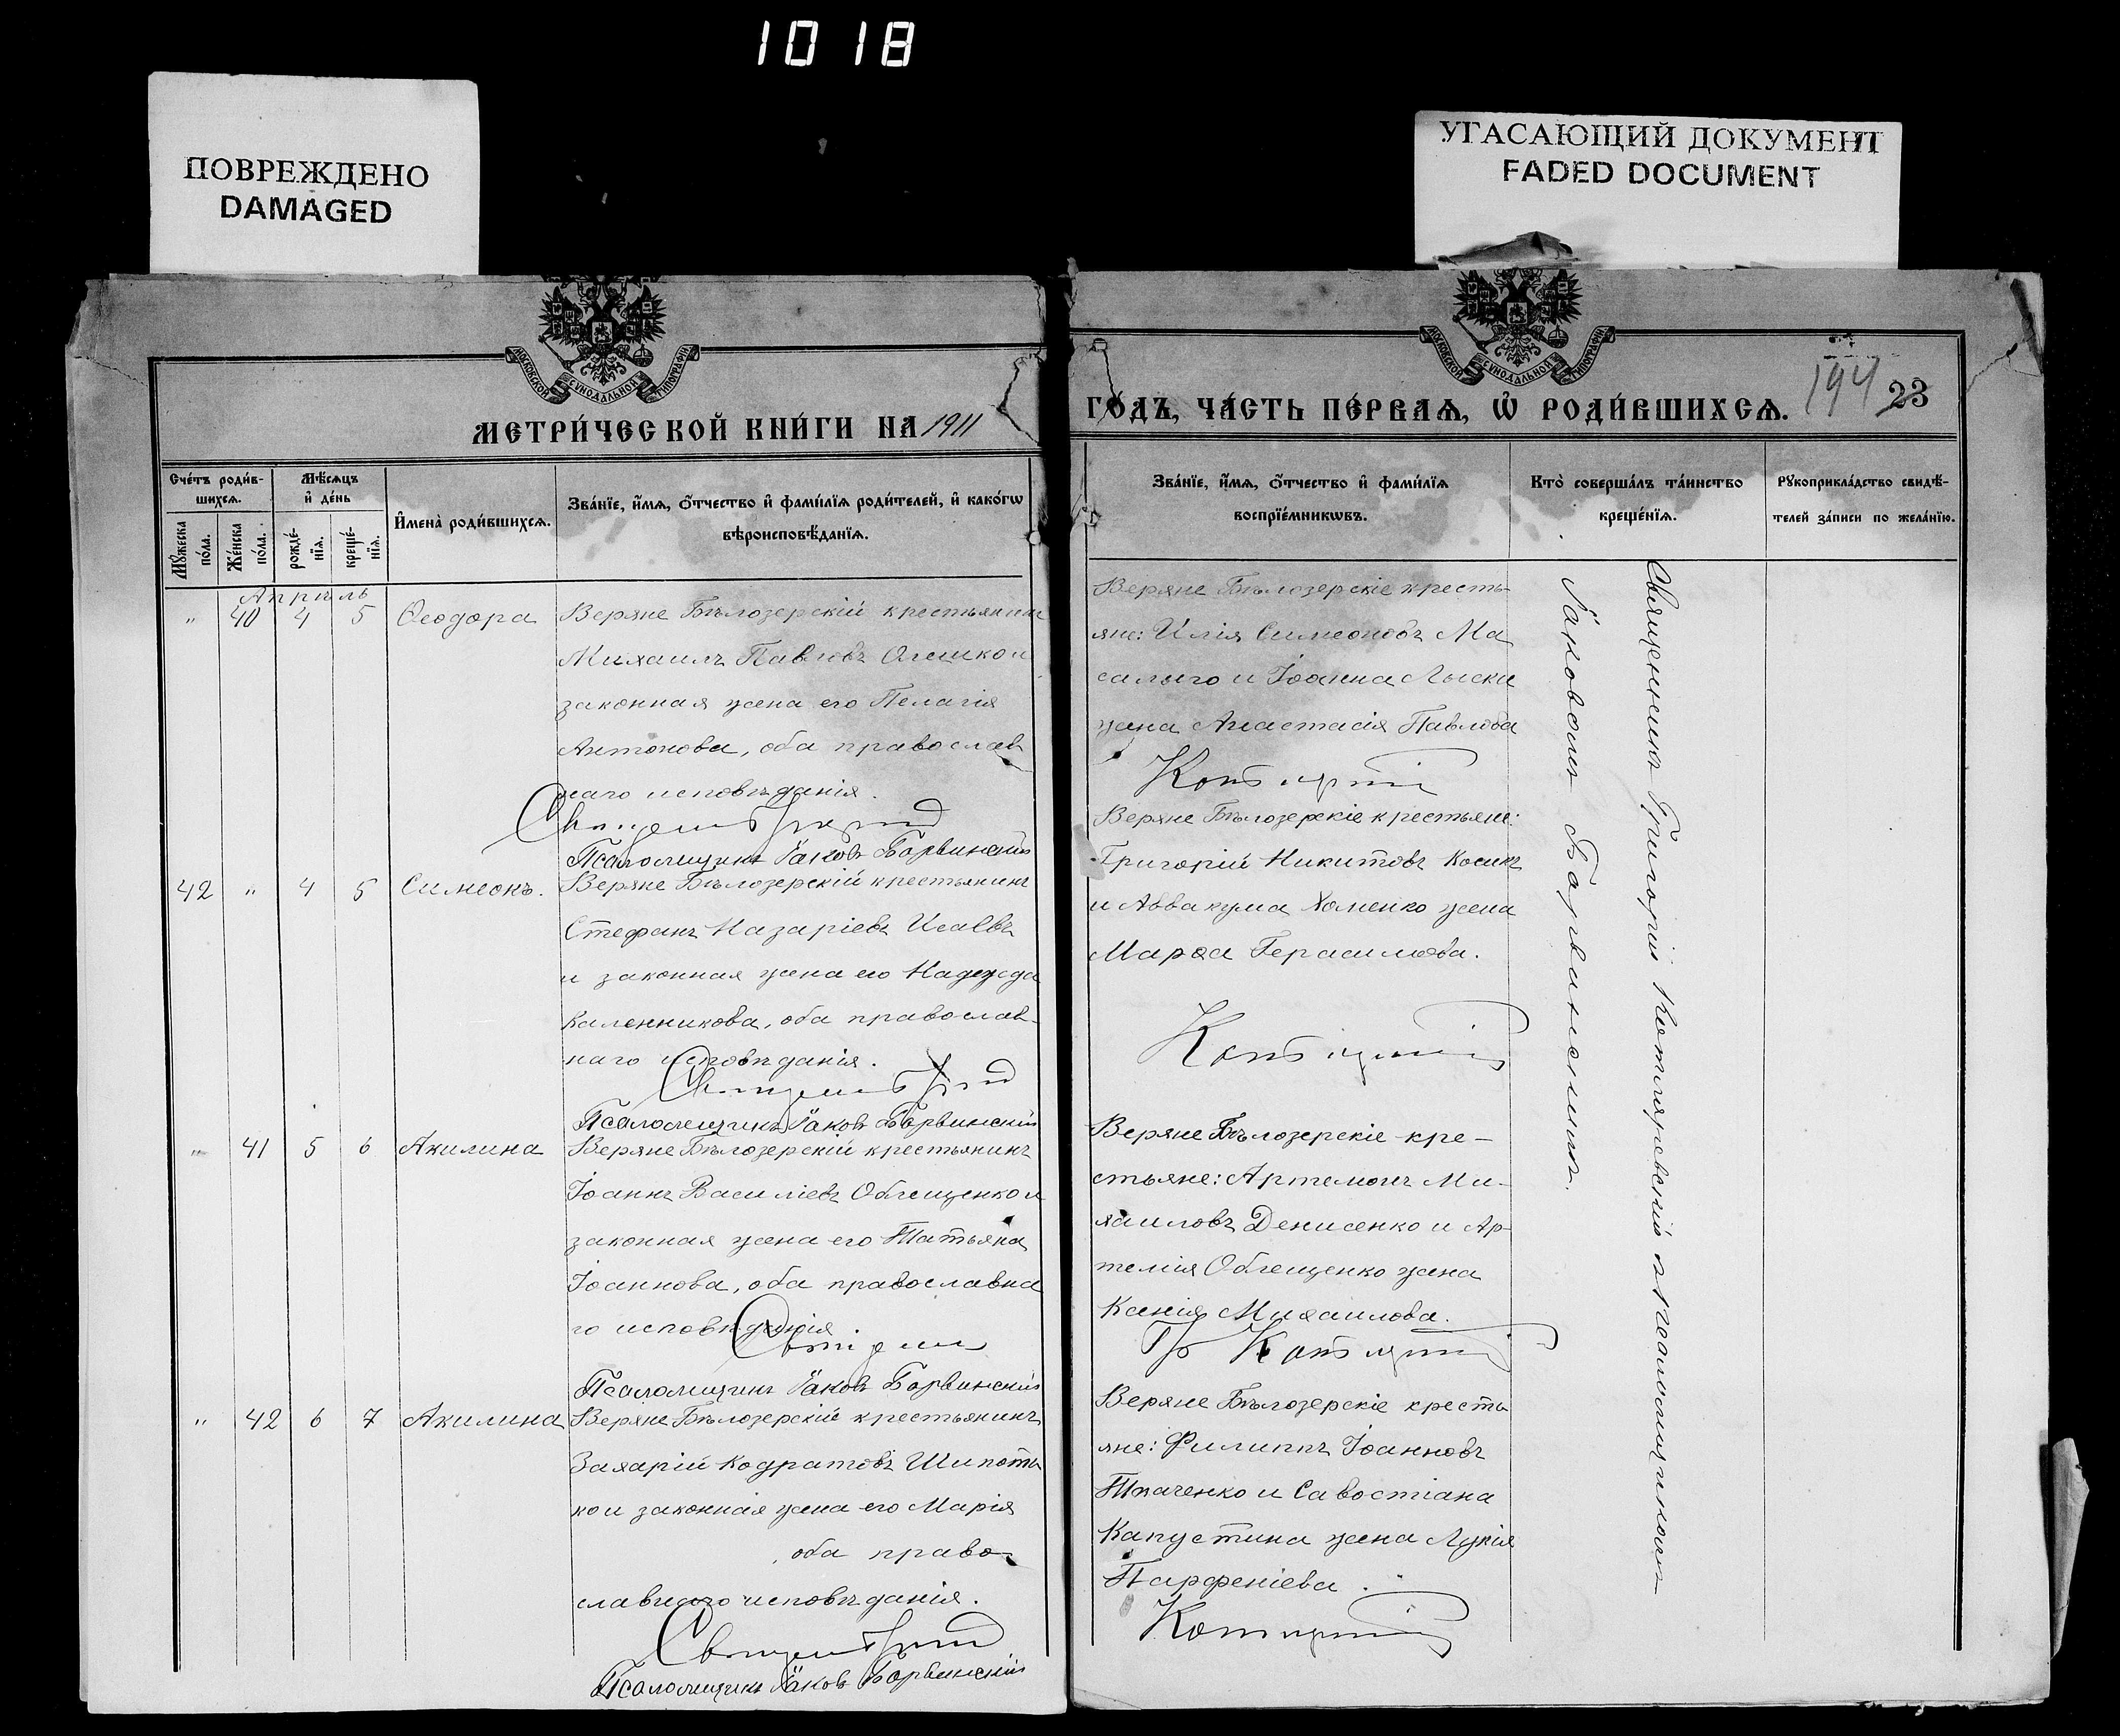 1018
ПОВРЕЖДЕНО
DAMAGED
УГАСАЮЩИЙ ДОКУМЕНТ
FADED DOCUMENT
МОСКОВСКОЙ СѴНОДАЛЬНОЙ ТИПОГРАФІИ
МОСКОВСКОЙ СѴНОДАЛЬНОЙ ТИПОГРАФІИ
МЕТРИ́ЧЕСКОЙ КНИ́ГИ НА 1911
ГО́ДЪ, ЧА́СТЬ ПЕ́РВАѦ, Ѡ҆ РОДИ́ВШИХСѦ.
194 23
Сче́тъ роди́в-
шихсѧ.
Мѣ́сѧцъ
и҆ де́нь
Мꙋ́жеска
по́ла.
Же́нска
по́ла.
рожде́-
нїѧ.
креще́-
нїѧ.
И҆мена̀ роди́вшихсѧ.
Зва́нїе, и҆́мѧ, ѻ҆́тчество и҆ фами́лїѧ роди́телей, и҆ како́гѡ
вѣроисповѣ́данїѧ.
Зва́нїе, и҆́мѧ, ѻ҆́тчество и҆ фами́лїѧ
воспрїе́мникѡвъ.
Кто̀ соверша́лъ та́инство
креще́нїѧ.
Рꙋкоприкла́дство свидѣ́-
телей за́писи по жела́нїю.
Апрѣль
" 40 4 5 Ѳеодора
Веряне Бѣлозерскій крестьянинъ
Михаилъ Павловъ Олешко и
законная жена его Пелагія
Антонова, оба православ
наго исповѣданія.
Псаломщикъ Іаковъ Борвинскій
Веряне Бѣлозерскіе кресть-
яне: Илія Симеоновъ Ма
салыго и Іоанна Лыски
жена Анастасія Павлова
42 " 4 5 Симеонъ.
Веряне Бѣлозерскій крестьянинъ
Стефанъ Назаріевъ Исаевъ
и законная жена его Надежда
Каленникова, оба православ-
наго исповѣданія.
Псаломщикъ Іаковъ Борвинскій
Веряне Бѣлозерскіе крестьяне:
Григорій Никитовъ Косикъ
и Аввакума Хоменко жена
Марѳа Герасимова.
" 41 5 6 Акилина
Веряне Бѣлозерскій крестьянинъ
Іоаннъ Василіевъ Облещенко и
законная жена его Татьяна
Іоаннова, оба православна
го исповѣданія
Псаломщикъ Іаковъ Борвинскій
Веряне Бѣлозерскіе кре-
стьяне: Артемонъ Ми-
хаиловъ Денисенко и Ар-
темія Облещенко жена
Ксенія Михаилова.
" 42 6 7 Акилина
Веряне Бѣлозерскій крестьянинъ
Захарій Кодратовъ Шипоть
ко и законная жена его Марія
, оба право-
славнаго исповѣданія.
Псаломщикъ Іаковъ Борвинскій
Веряне Бѣлозерскіе кресть
яне: Филиппъ Іоанновъ
Ткаченко и Савостіана
Капустина жена Лукія
Парфеніева.
Священникъ Григорій Котляревскій съ псаломщикомъ
Іаковомъ Борвинскимъ.